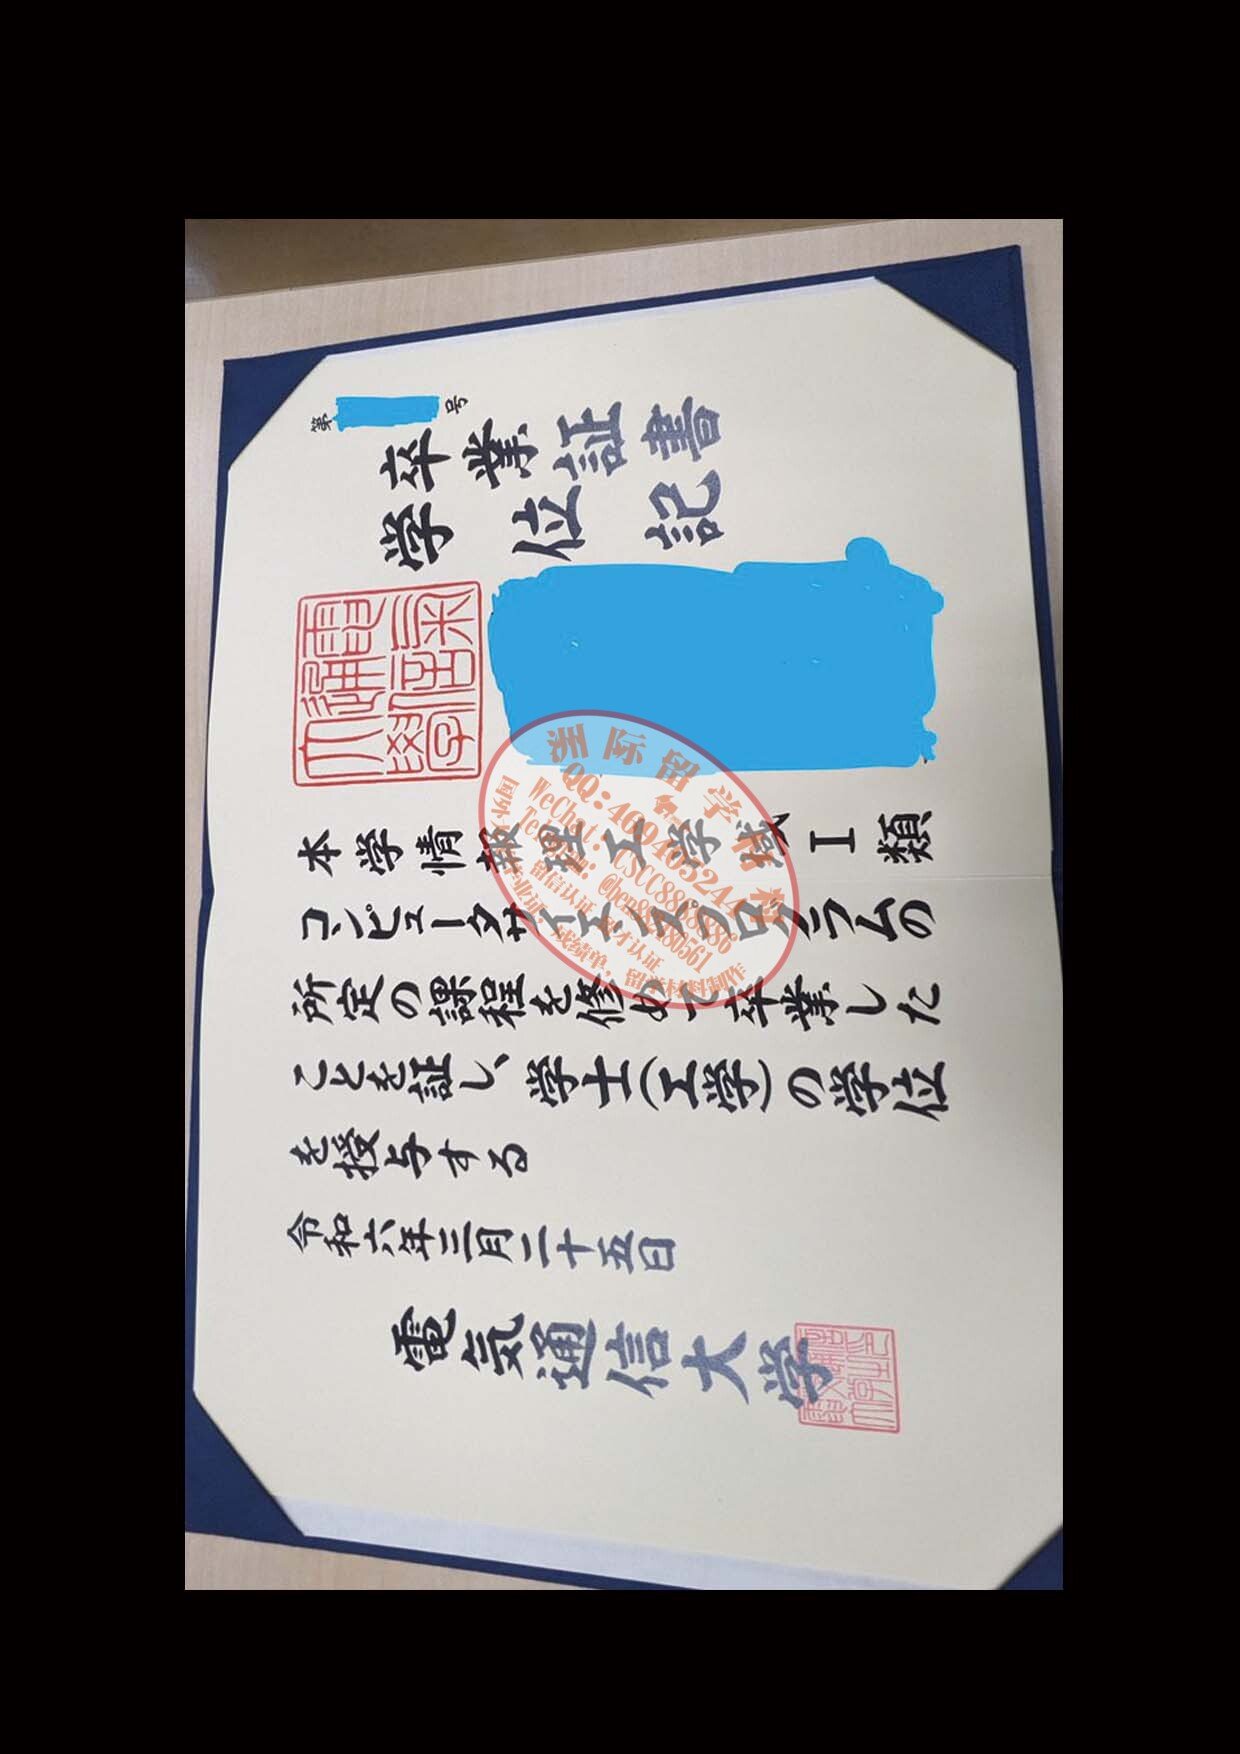 第 号
卒業証書
学位記
本学情報理工学域Ⅰ類
コンピュータサイエンスプログラムの
所定の課程を修めて卒業した
ことを証し、学士(工学)の学位
を授与する
令和六年三月二十五日
電気通信大学
洲际留学材料
QQ:409405244
WeChat: CSCC88888886
留信认证,
才认证
毕业证,成绩单,留学材料制作